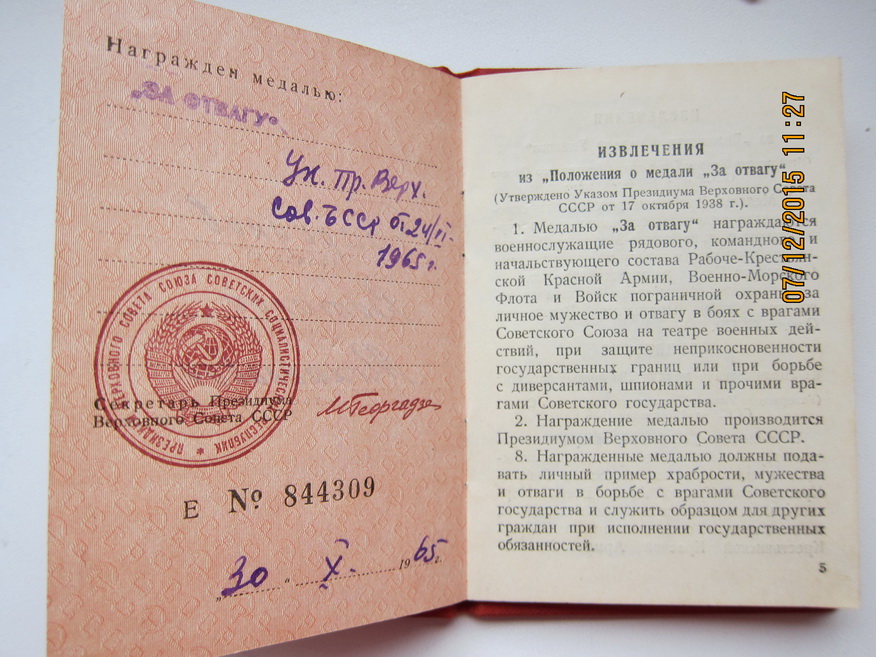 Награжден медалью:
„ЗА ОТВАГУ"
Ук. Пр. Верх.
Сов. БССР от 24/VI-
1965 г.
ПРЕЗИДИУМ ВЕРХОВНОГО СОВЕТА СОЮЗА СОВЕТСКИХ СОЦИАЛИСТИЧЕСКИХ РЕСПУБЛИК
Секретарь Президиума
Верховного Совета СССР
МГеоргадзе
Е № 844309
„30" X. 1965 г.
ИЗВЛЕЧЕНИЯ
из „Положения о медали „За отвагу"
(Утверждено Указом Президиума Верховного Совета
СССР от 17 октября 1938 г.).
1. Медалью „За отвагу" награждаются
военнослужащие рядового, командного и
начальствующего состава Рабоче-Крестьян-
ской Красной Армии, Военно-Морского
Флота и Войск пограничной охраны за
личное мужество и отвагу в боях с врагами
Советского Союза на театре военных дей-
ствий, при защите неприкосновенности
государственных границ или при борьбе
с диверсантами, шпионами и прочими вра-
гами Советского государства.
2. Награждение медалью производится
Президиумом Верховного Совета СССР.
8. Награжденные медалью должны пода-
вать личный пример храбрости, мужества
и отваги в борьбе с врагами Советского
государства и служить образцом для других
граждан при исполнении государственных
обязанностей.
5
07/12/2015 11:27